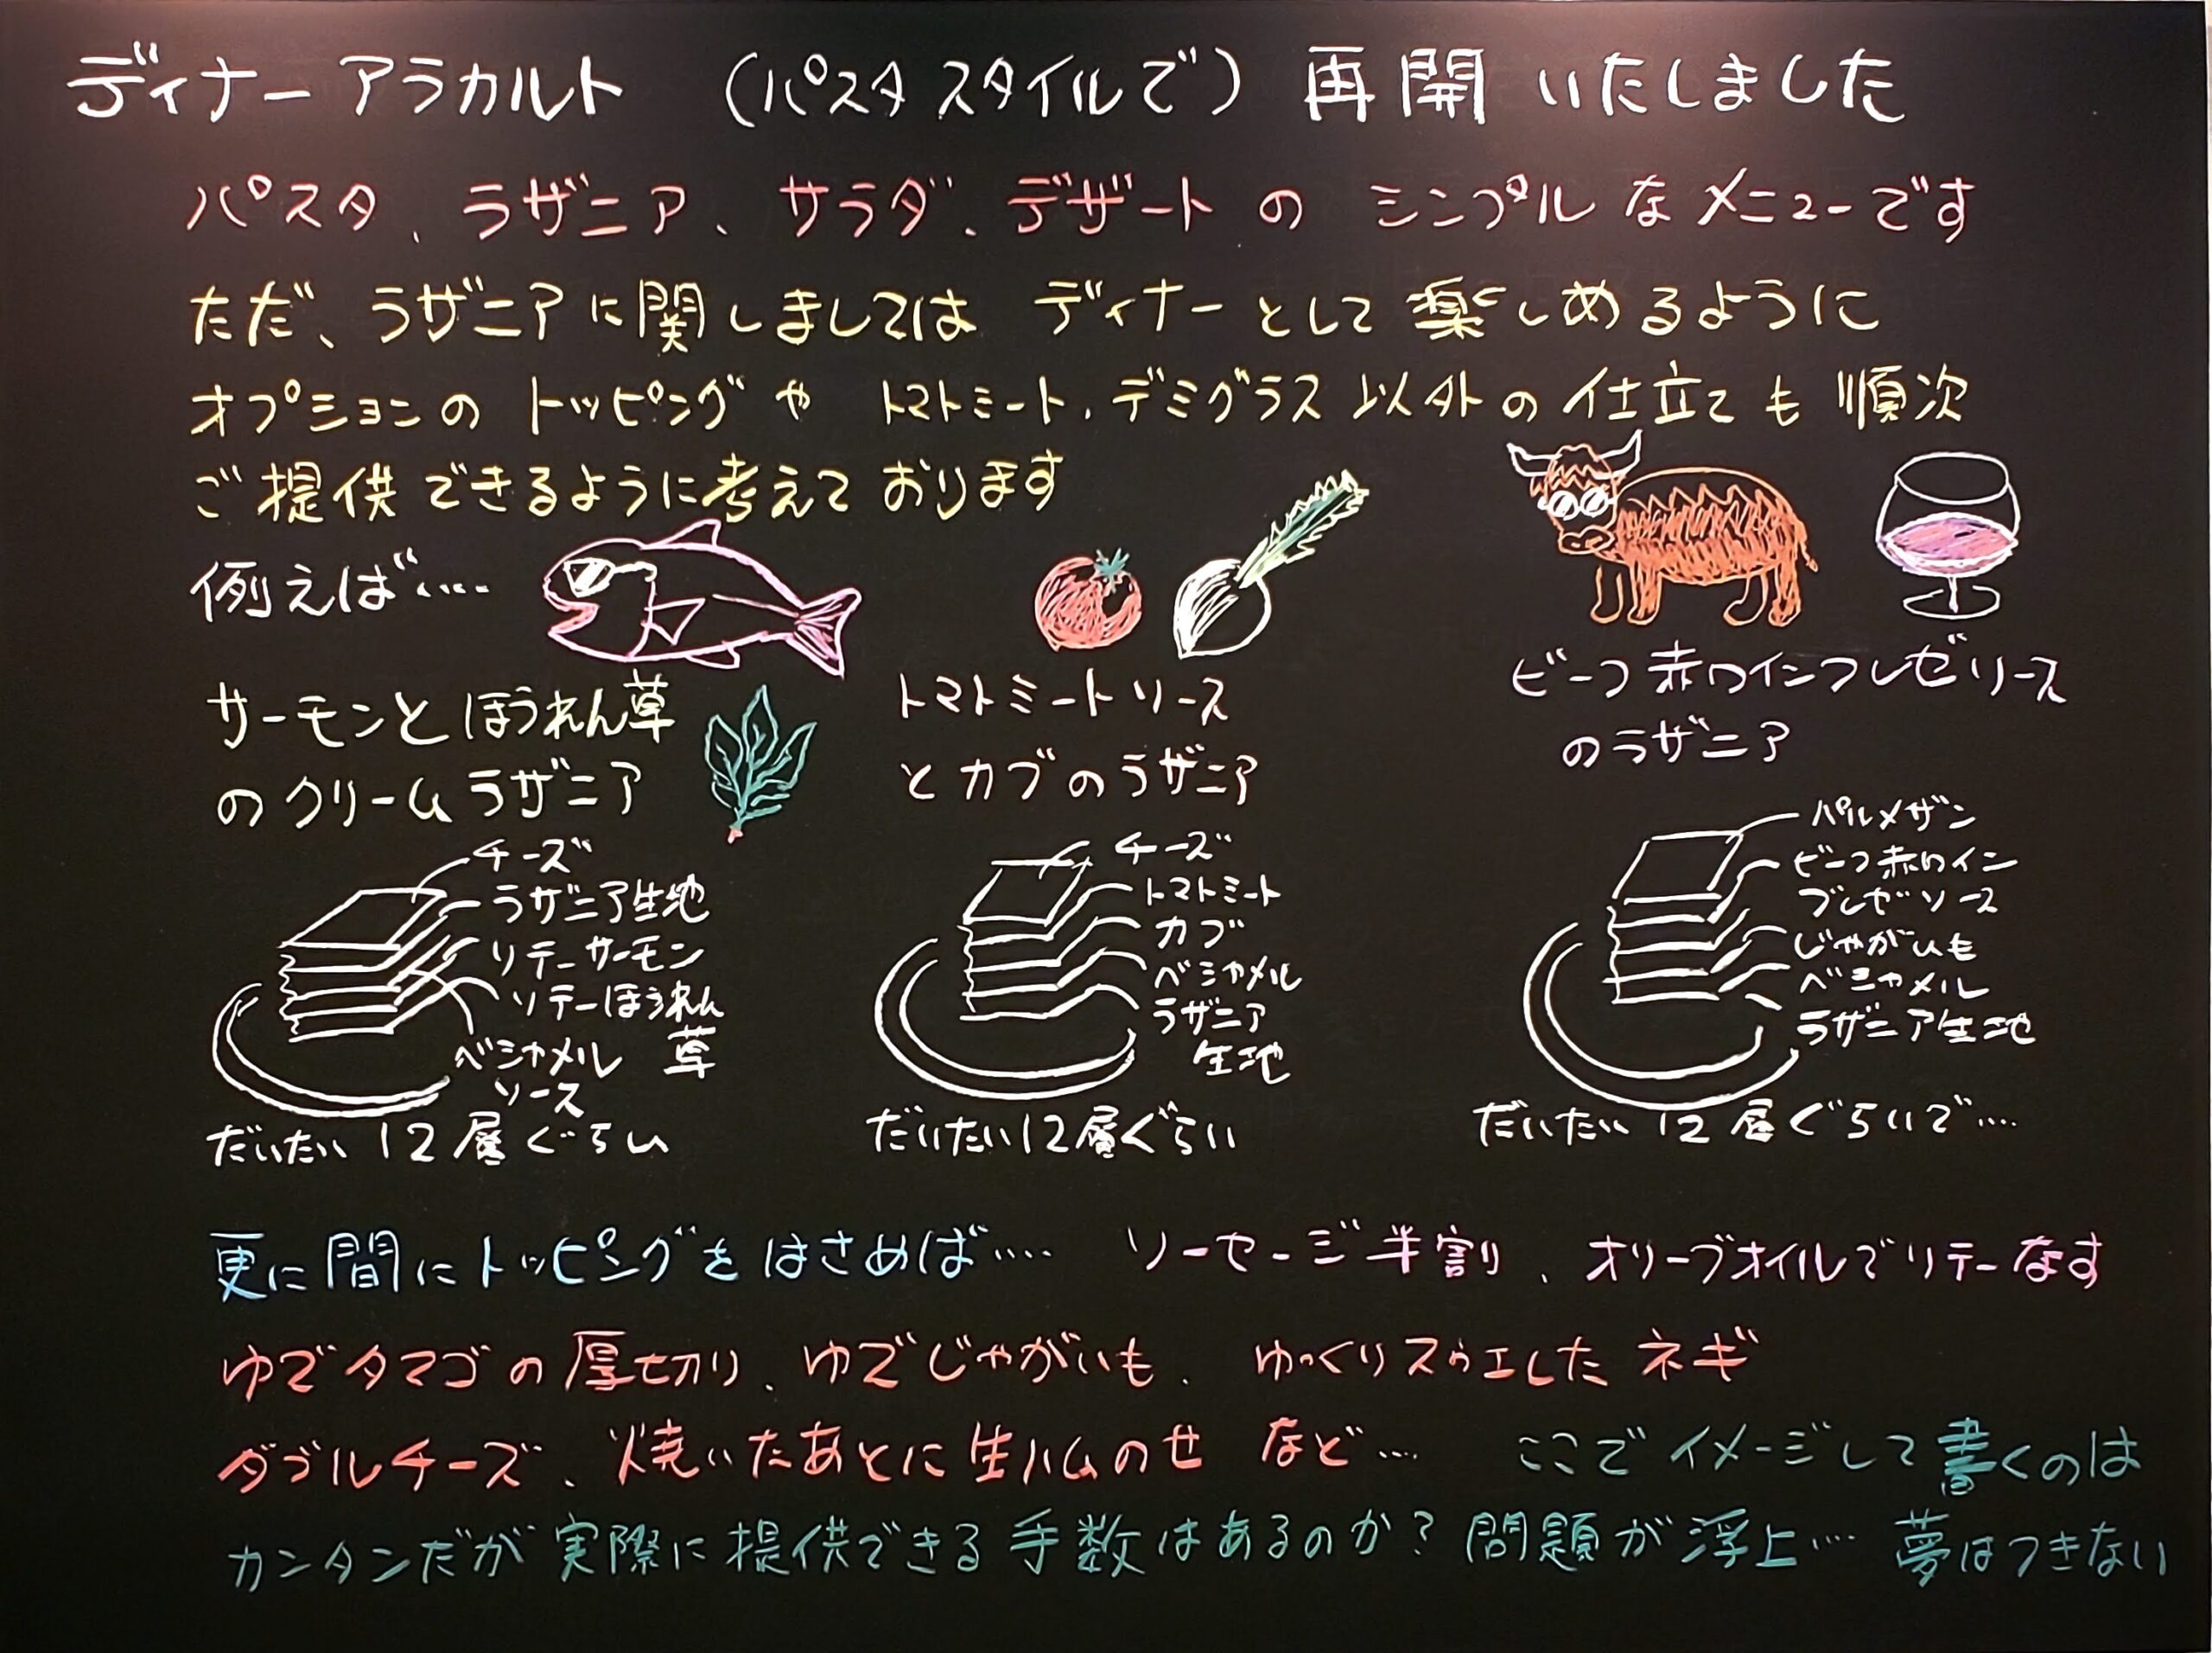 ディナー アラカルト （パスタ スタイルで） 再開 いたしました
パスタ、ラザニア、サラダ、デザート の シンプル な メニューです
ただ、ラザニアに関しましては ディナーとして楽しめるように
オプションの トッピング や トマトミート、デミグラス 以外の 仕立ても 順次
ご提供できるように考えて おります
例えば‥‥
サーモンと ほうれん草
のクリーム ラザニア
チーズ
ラザニア生地
ソテーサーモン
ソテーほうれん
草
ベシャメル
ソース
だいたい 12層ぐらい
トマトミートソース
とカブのラザニア
チーズ
トマトミート
カブ
ベシャメル
ラザニア
生地
だいたい12層ぐらい
ビーフ赤ワインブレゼソース
のラザニア
パルメザン
ビーフ赤ワイン
ブレゼソース
じゃがいも
ベシャメル
ラザニア生地
だいたい 12層ぐらいで‥‥
更に間にトッピングをはさめば‥‥ ソーセージ半割、オリーブオイルでソテーなす
ゆでタマゴの厚切り、ゆでじゃがいも、ゆっくりスゥエした ネギ
ダブルチーズ、焼いたあとに生ハムのせ など‥‥ ここでイメージして書くのは
カンタンだが実際に提供できる手数はあるのか？問題が浮上‥‥ 夢はつきない